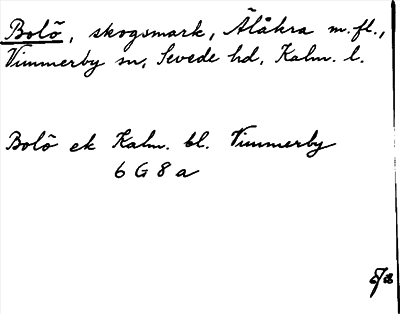 Bolö, skogsmark, Ålåkra m.fl.,
Vimmerby sn, Sevede hd, Kalm. l.
Bolö ek Kalm. bl. Vimmerby
6 G 8 a